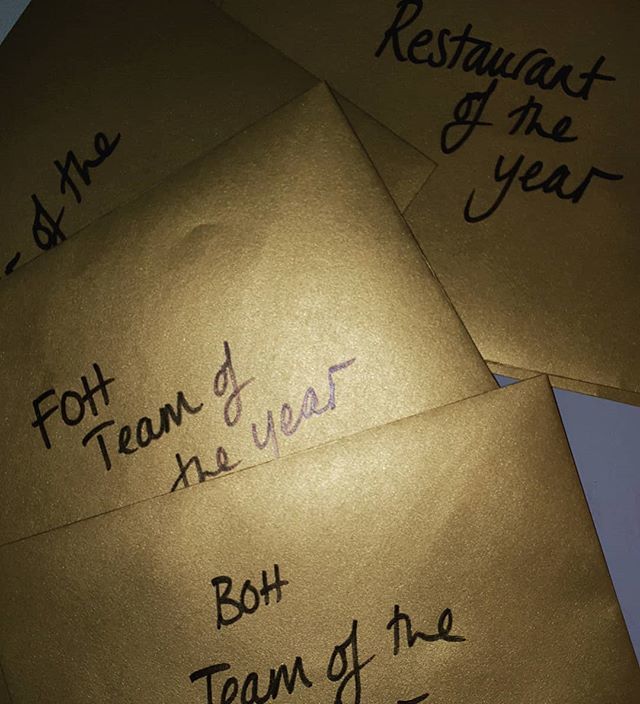 Restaurant
of the
year
of the
FOH
Team of
the year
BOH
Team of the